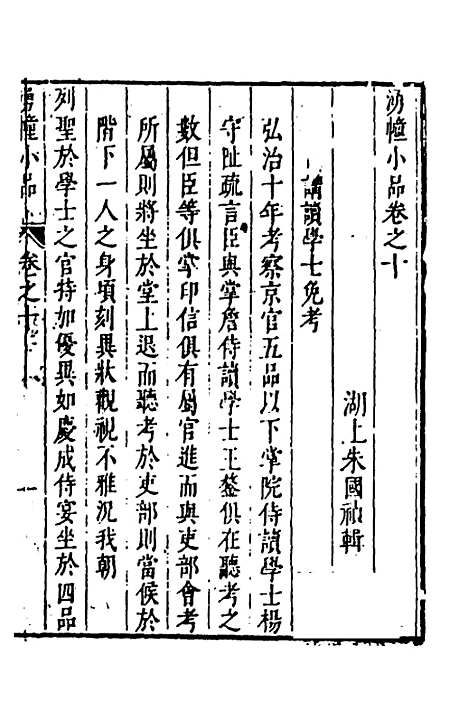 湧幢小品卷之十
湖上朱國禎輯
講讀學士免考
弘治十年考察京官五品以下掌院侍讀學士楊
守阯疏言臣與掌詹侍讀學士王鏊俱在聽考之
數但臣等俱掌印信俱有屬官進而與吏部會考
所屬則將坐於堂上退而聽考於吏部則當候於
階下一人之身頃刻異狀觀視不雅況我朝
列聖於學士之官特加優異如慶成侍宴坐於四品
湧幢小品
卷之十
一